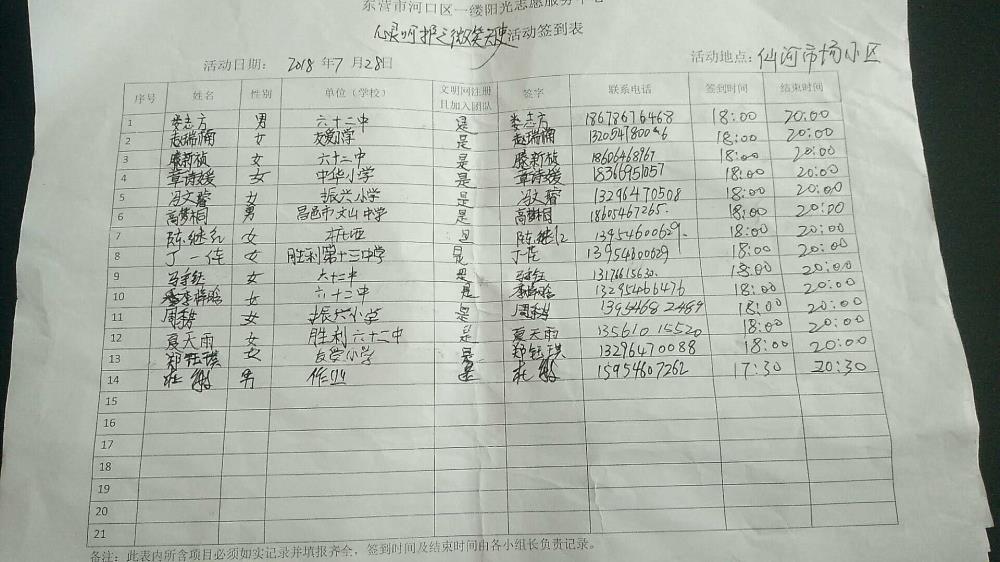 东营市河口区一缕阳光志愿服务中心
心灵呵护之微笑天使活动签到表
活动日期: 2018 年 7 月 28日 活动地点: 仙河市场小区
序号 姓名 性别 单位(学校) 文明网注册且加入团队 签字 联系电话 签到时间 结束时间
1 娄志方 男 六十二中 是 娄志方 18678676468 18:00 20:00
2 赵瑞楠 女 友爱小学 是 赵瑞楠 18:00 20:00
3 滕新桢 女 六十二中 是 滕新桢 18606468967 18:00 20:00
4 章诗媛 女 中华小学 是 章诗媛 18366951057 18:00 20:00
5 冯文馨 女 振兴小学 是 冯文馨 13296470508 18:00 20:00
6 高梦桐 男 昌邑市文山中学 是 高梦桐 18605467265. 18:00 20:00
7 陈继红 女 是 陈继红 13954600629. 18:00 20:00
8 丁一 女 胜利第十三中学 是 丁一 13954600629 18:00 20:00
9 女 六十二中 是 13176615630. 18:00 20:00
10 李梓晗 女 六十二中 是 李梓晗 13295466476 18:00 20:00
11 周 女 振兴小学 是 周 13954682489 18:00 20:00
12 夏天雨 女 胜利六十二中 是 夏天雨 13561015520 18:00 20:00
13 郑钰琪 女 友爱小学 是 郑钰琪 13296470088 18:00 20:00
14 杜 男 作业 是 杜 15954607262 17:30 20:30
15
16
17
18
19
20
21
备注: 此表内所含项目必须如实记录并填报齐全,签到时间及结束时间由各小组长负责记录。